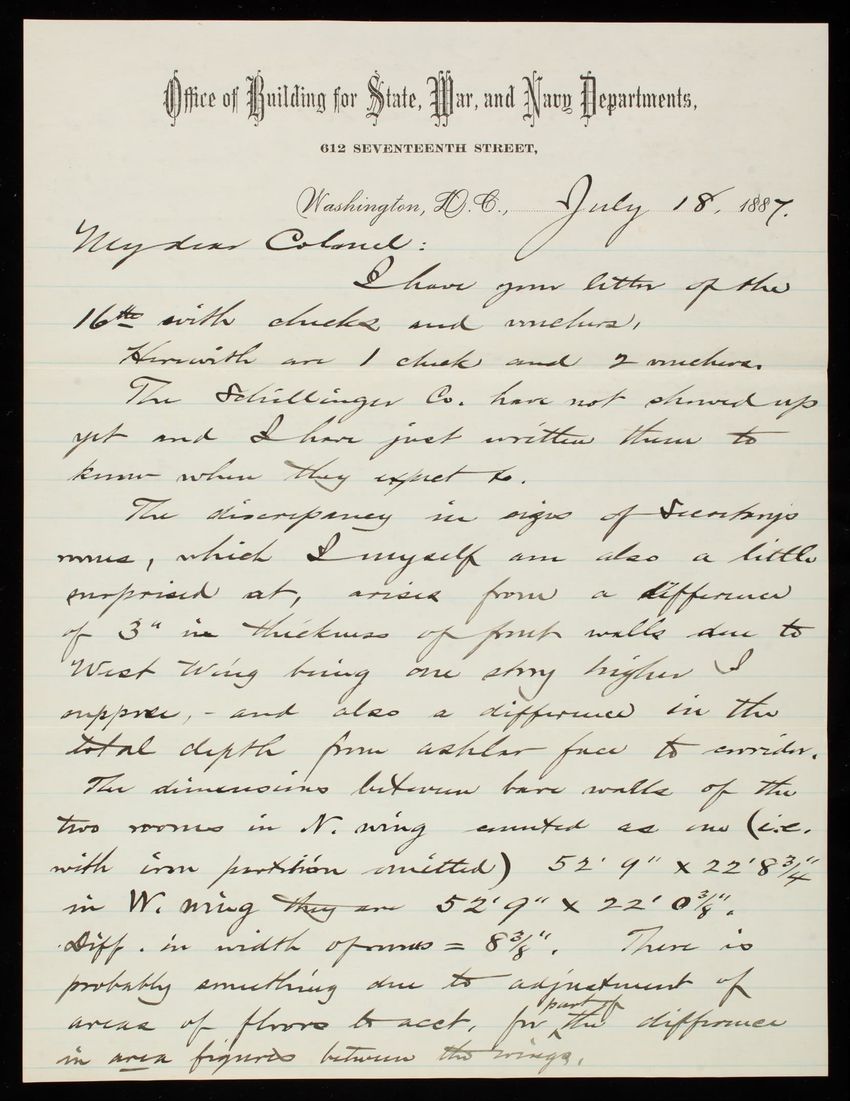 Office of Building for State, War, and Navy Departments,
612 SEVENTEENTH STREET,
Washington, D.C., July 18, 1887.
My dear Colonel:
I have your letter of the
16th with checks and vouchers.
Herewith are 1 check and 2 vouchers.
The Schillinger Co. have not showed up
yet and I have just written them to
know when they expect to.
The discrepancy in sizes of Secretary's
rooms, which I myself am also a little
surprised at, arises from a difference
of 3" in thickness of front walls due to
West Wing being one story higher I
suppose, - and also a difference in the
total depth from ashlar face to corridor.
The dimensions between bare walls of the
two rooms in N. wing counted as one (i.e.
with iron partition omitted) 52' 9" x 22' 8 3/4"
in W. wing they are 52' 9" x 22' 0 3/8".
Diff. in width of rooms = 8 3/8". There is
probably something due to adjustment of
areas of floors to acct. for part of the difference
in area figures between the wings.